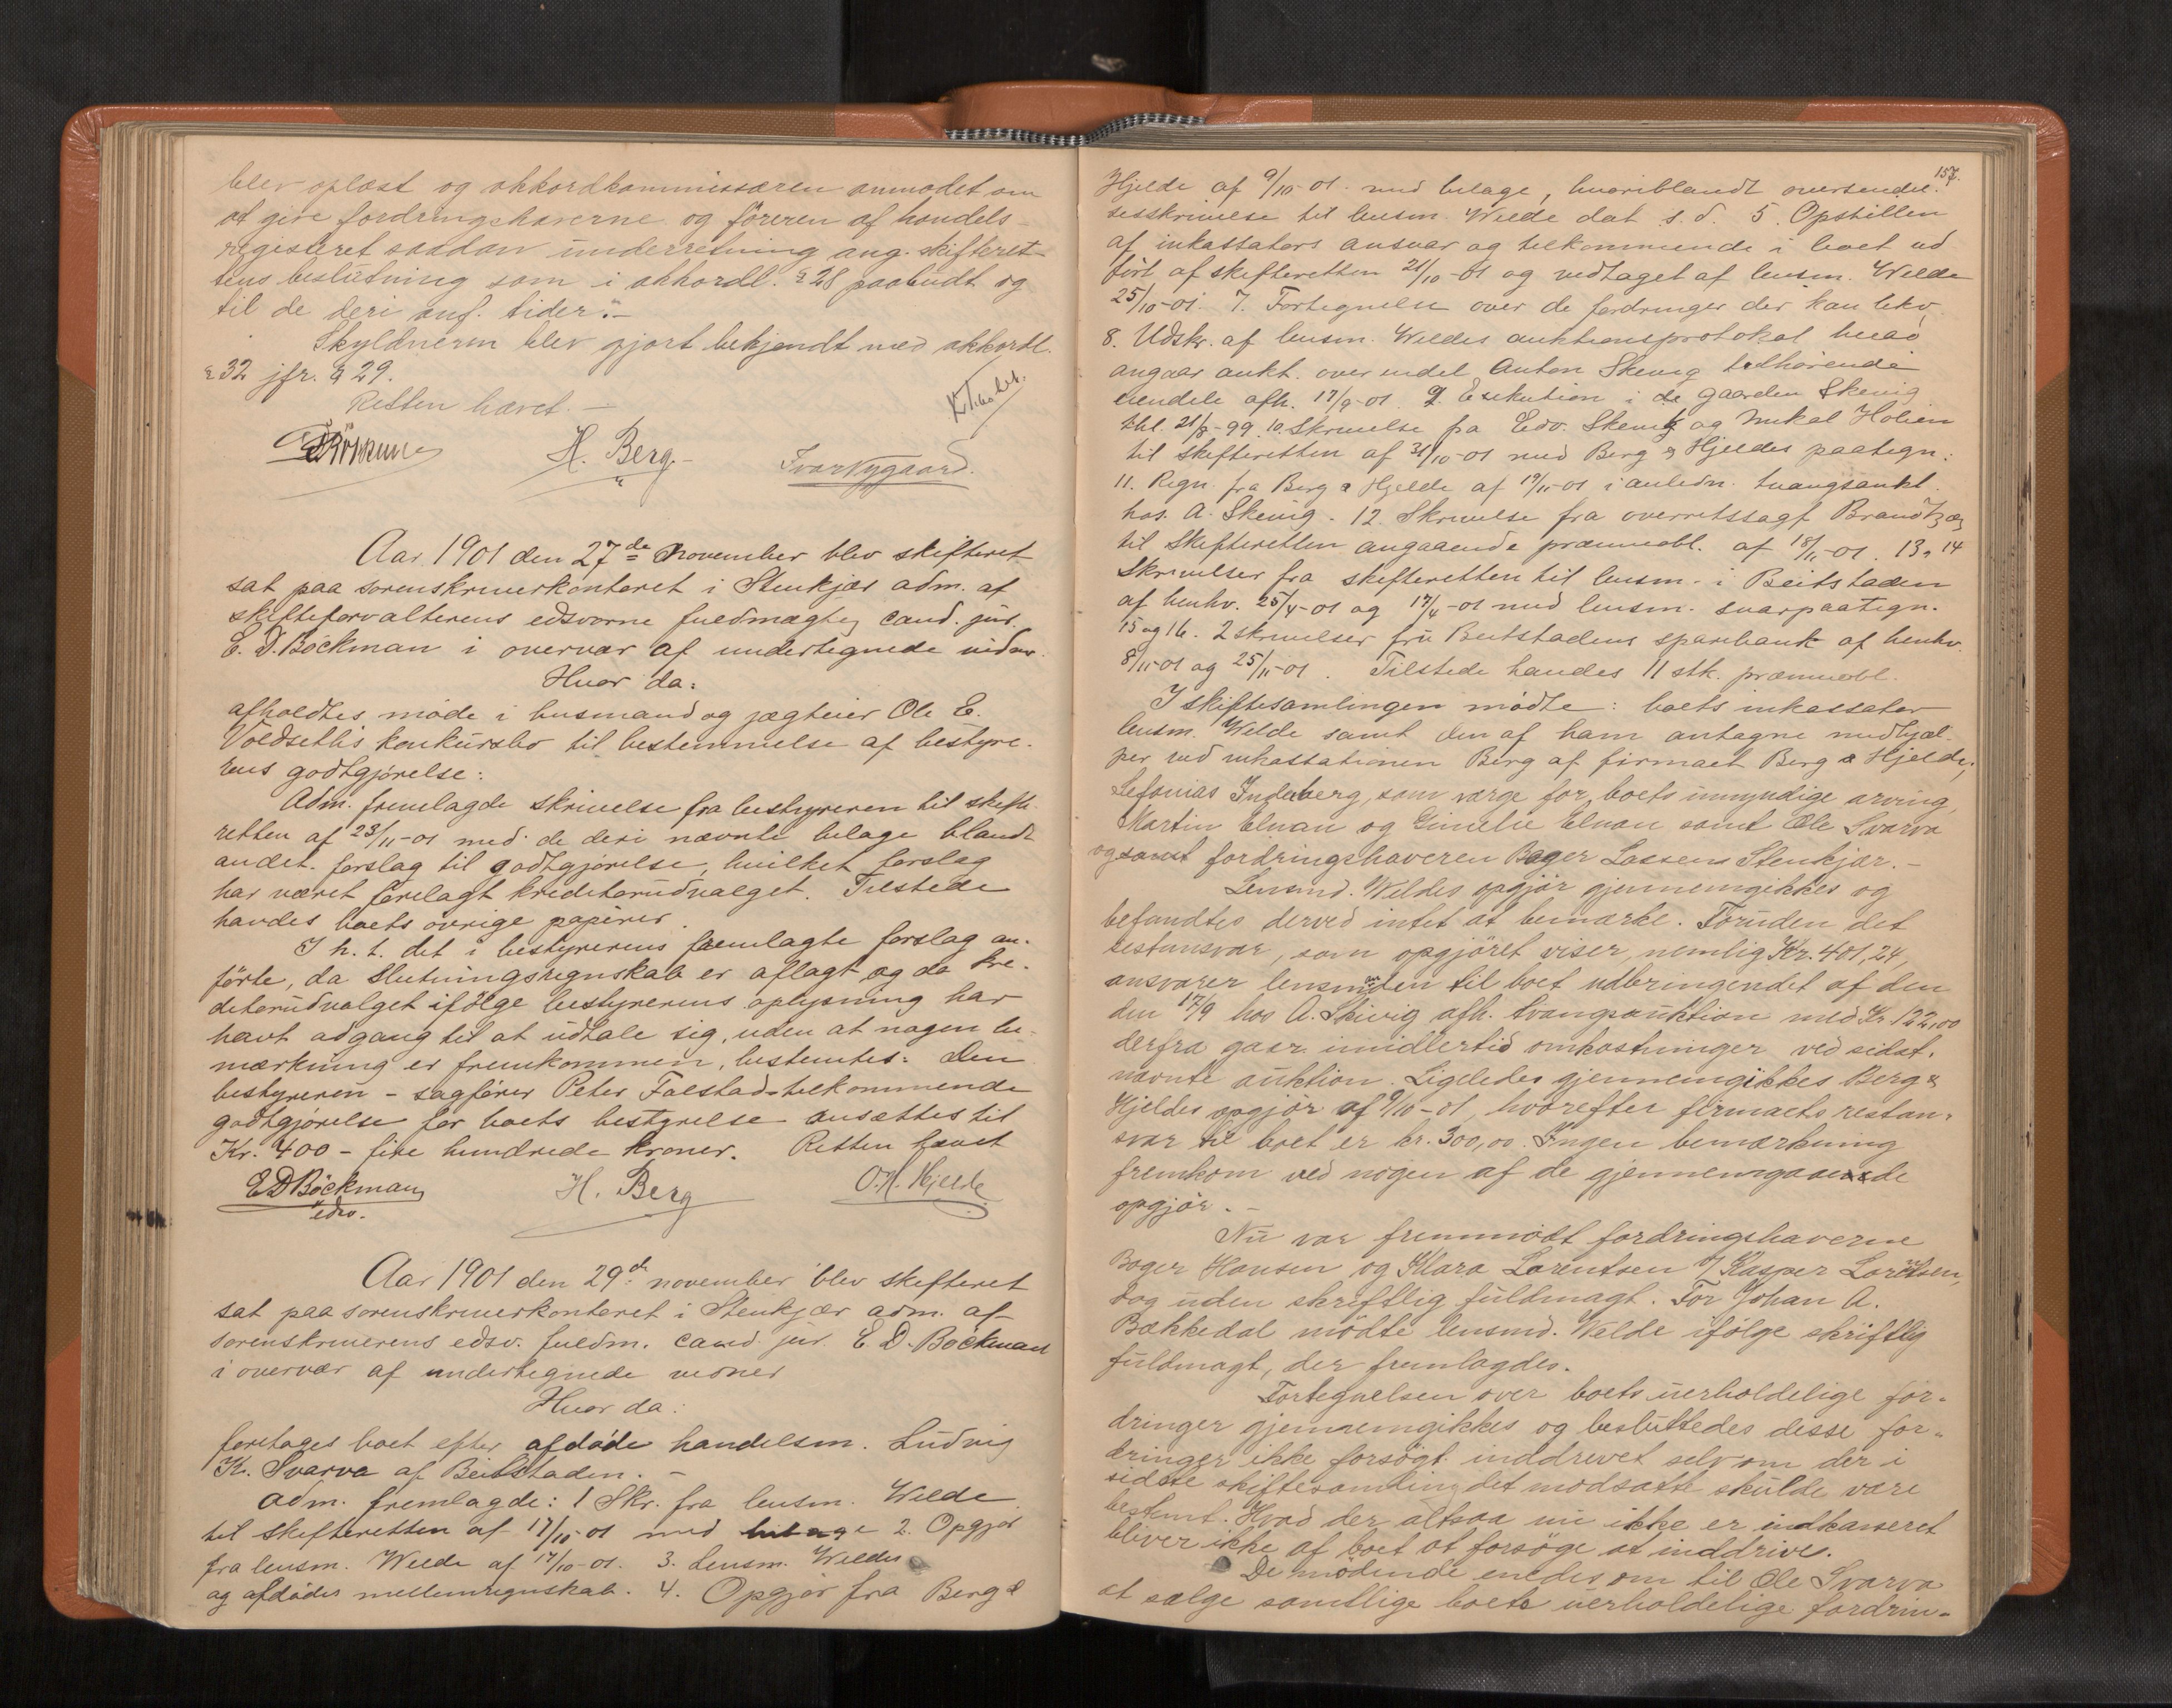 blev oplæst og akkordkommissæren anmodet om
at give fordringshaverne og föreren af handels-
registeret saadan underretning ang. skifteret-
tens beslutning som i akkordl. § 28 paabudt og
til de deri anf. tider".-
Skyldneren blev gjort bekjendt med akkordl.
§ 32 jfr. § 29.
Retten hævet. -
EDBöckman H. Berg Ivar Nygaard.
Aar 1901 den 27de november blev skifteret
sat paa sorenskriverkontoret i Stenkjær adm. af
skifteforvalterens edsvorne fuldmægtig cand. jur.
E. D. Böckman i overvær af undertegnede vidner.
Hvor da:
afholdtes möde i husmand og jægteier Ole E.
Voldseths konkursbo til bestemmelse af bestyre-
rens godtgjörelse:
Adm. fremlagde skrivelse fra bestyreren til skifte-
retten af 23/11-01 med de deri nævnte bilage blandt
andet forslag til godtgjörelse, hvilket forslag
har været forelagt kreditorudvalget. Tilstede
havdes boets övrige papirer.
I h. t. det i bestyrerens fremlagte forslag an-
förte, da slutningsregnskab er aflagt og da kre-
ditorudvalget ifölge bestyrerens oplysning har
havt adgang til at udtale sig, uden at nogen be-
mærkning er fremkommen, bestemtes: Den
bestyreren - sagförer Peter Falstad - tilkommende
godtgjörelse for boets bestyrelse ansættes til
Kr. 400 - fire hundrede kroner. Retten hævet
EDBöckman H. Berg O.H. Hjelde
edsv.
Aar 1901 den 29de november blev skifteret
sat paa sorenskriverkontoret i Stenkjær adm. af
sorenskriverens edsv. fuldm. cand jur. E. D. Böckman
i overvær af undertegnede vidner
Hvor da:
foretages boet efter afdöde handelsm. Ludvig
K. Svarva af Beitstaden. -
Adm. fremlagde: 1 Skr. fra lensm. Welde
til skifteretten af 17/10-01 med bilage 2. Opgjör
fra lensm. Welde af 17/10-01. 3. Lensm. Weldes
og afdödes mellemregnskab. 4. Opgjör fra Berg &
157.
Hjelde af 9/10-01. med bilage, hvoriblandt oversendel-
sesskrivelse til lensm. Welde dat. s. d. 5. Opstillen
af inkassators ansvar og tilkommende i boet ud
fört af skifteretten 21/10-01 og vedtaget af lensm. Welde
25/10-01. 7. Fortegnelse over de fordringer der kan bekv.
8. Udskr. af lensm. Weldes auktionsprotokol hvad
angaar aukt. over endel Anton Skevig tilhörende
eiendele afh. 17/9-01 9. Exekution i de gaarden Skevig
thl. 21/8-99. 10. Skrivelse fra Edv. Skevig og Mikal Holien
til skifteretten af 31/10-01 med Berg & Hjeldes paategn.
11. Regn. fra Berg & Hjelde af 19/11-01 i anledn. tvangsaukt.
hos A. Skevig. 12. Skrivelse fra overretssagf. Brandtzæg
til skifteretten angaaende præmieobl. af 18/11-01. 13 & 14
skrivelser fra skifteretten til lensm. i Beitstaden
af henhv. 25/4-01 og 17/4-01 med lensm. svarpaategn.
15 og 16. 2 skrivelser fra Beitstadens sparebank af henhv.
8/11-01 og 25/11-01. Tilstede havdes 11 stk. præmieobl.
I skiftesamlingen mödte: boets inkassator
lensm. Welde samt den af ham antagne medhjæl-
per ved inkassationen Berg af firmaet Berg & Hjelde;
Sefanias Inderberg, som værge for boets umyndige arving
Martin Elnan og Elnan samt Ole Svarva
og samt fordringshaveren Bager Lassens Stenkjær. -
Lensmd. Weldes opgjör gjennemgikkes og
befandtes derved intet at bemærke. Foruden det
restansvar, som opgjöret viser, nemlig Kr. 401,24,
ansvarer lensmanden til boet udbringendet af den
den 17/9 hos A. Skevig afh. tvangsauktion med Kr. 122,00
derfra gaar imidlertid omkostninger ved sidst-
nævnte auktion. Ligeledes gjennemgikkes Berg &
Hjeldes opgjör af 9/10-01, hvorefter firmaets restan-
svar til boet er kr. 300,00. Ingen bemærkning
fremkom ved nogen af de gjennemgaaende
opgjör. -
Nu var fremmödt fordringshaverne
Bager Hansen og Klara Lorentsen v/ Kasper Lorentsen,
dog uden skriftlig fuldmagt. For Johan A.
Bækkedal mödte lensmd. Welde ifölge skriftlig
fuldmagt, der fremlagdes.
Fortegnelsen over boets uerholdelige for-
dringer gjennemgikkes og besluttedes disse for-
dringer ikke forsögt inddrevet selv om der i
sidste skiftesamling det modsatte skulde være
bestemt. Hvad der altsaa nu ikke er indkasseret
bliver ikke af boet at forsöge at inddrives.
De mödende enedes om til Ole Svarva
at sælge samtlige boets uerholdelige fordrin-